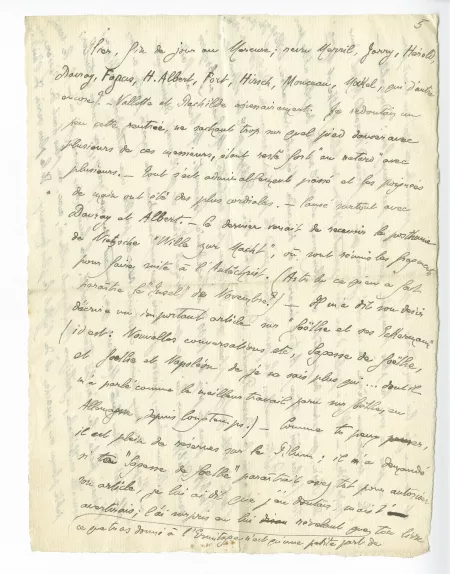 5
Hier, fin de jour au Mercure ; revu Merrill, Jarry, Hérold
Davray, Fagus, H. Albert, Fort, Hirsch, Morel, qui d'autre
encore ? – Vallette et Rachilde nécessairement. Je redoutais un
peu cette rentrée, ne sachant trop sur quel pied danser avec
plusieurs de ces messieurs, étant resté fort en retard avec
plusieurs. – Tout s'est admirablement passé et les poignées
de main ont été des plus cordiales. – Causé surtout avec
Davray et Albert. – Ce dernier venait de recevoir le posthume
de Nietzsche "Wille zur Macht", où sont réunis les fragments
pour faire suite à l'Antéchrist. (As-tu lu ce qu'en a fait
paraître la "Insel" de Novembre ?) – Il m'a dit son désir
d'écrire un important article sur "Goethe et ses Eckermann"
(id est : Nouvelles conversations etc, Sagesse de Goethe,
et Goethe et Napoléon de je ne sais plus qui ... dont il
m'a parlé comme le meilleur travail paru sur Goethe, en
Allemagne, depuis longtemps.) – Comme tu peux penser,
il est plein de réserves sur le : il m'a demandé
si ta "Sagesse de Goethe" paraîtrait assez tôt pour autoriser
son article, je lui ai dit que j'en doutais, mais l'
avertirais ; l'ai surpris en lui révélant que ton livre
ce que tu as donné à l'Ermitage n'est qu'une petite part de